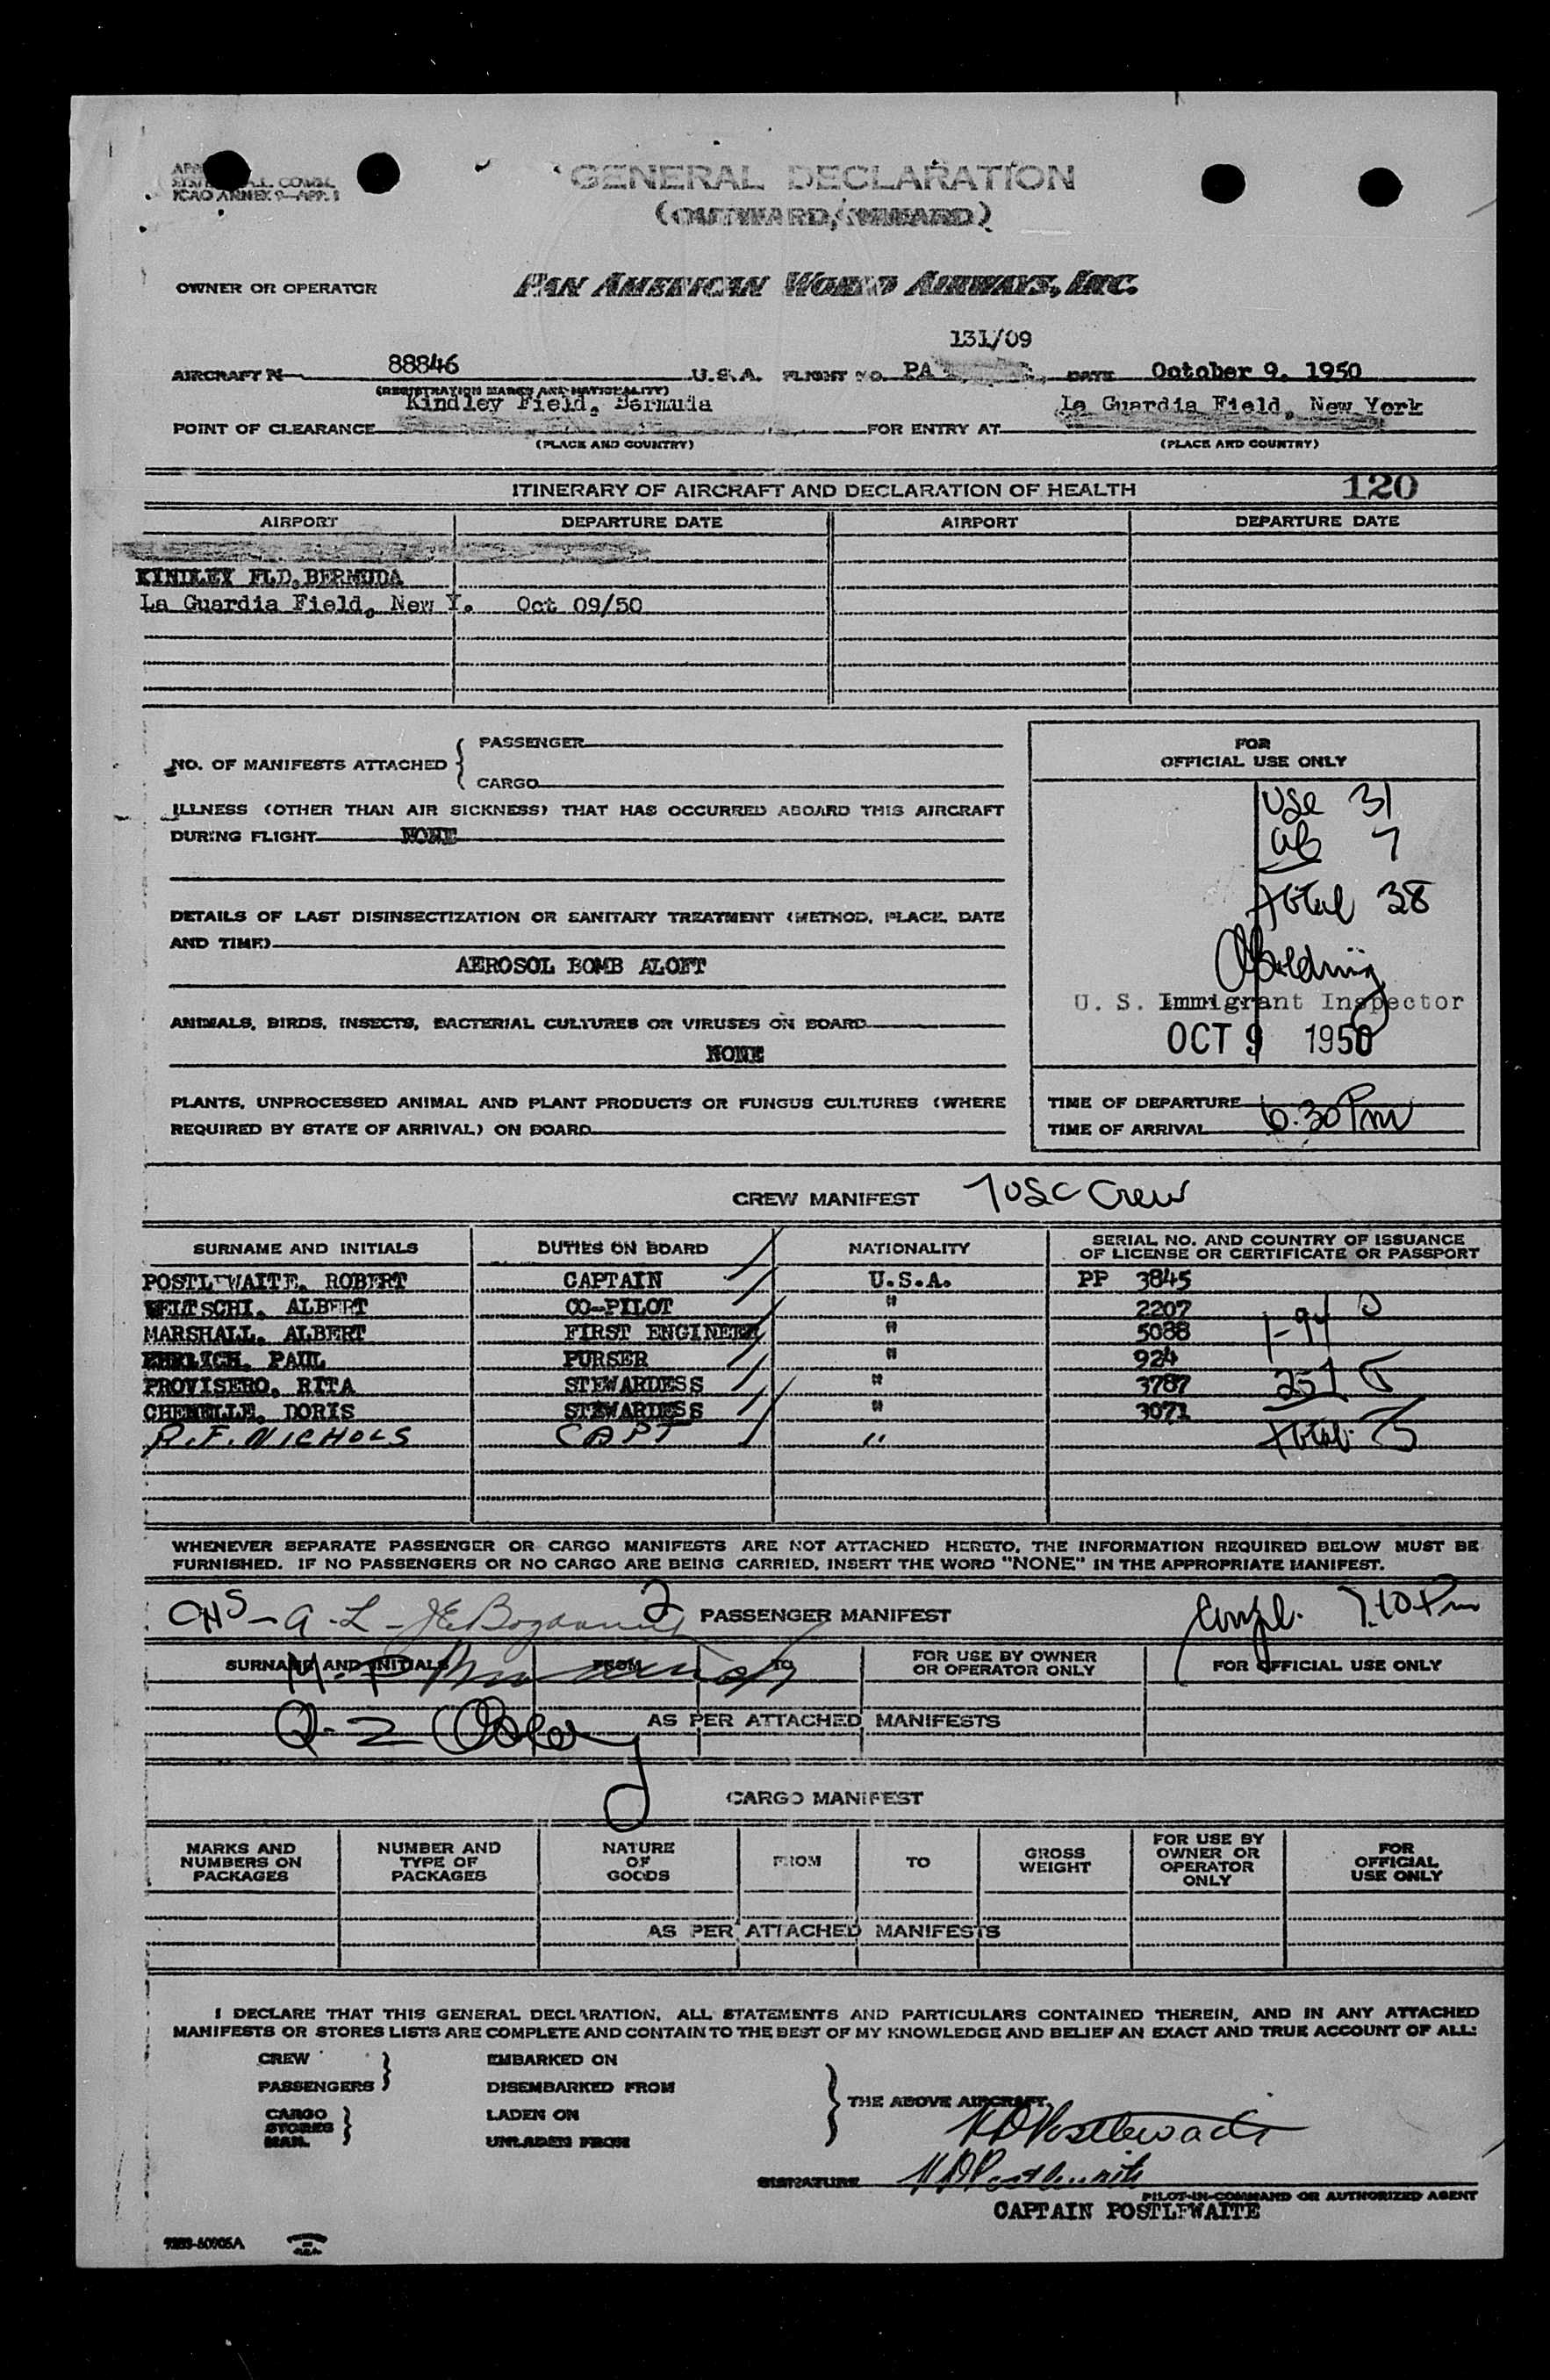 ICAO ANNEX 9—APP. 1
GENERAL DECLARATION
(OUTWARD/INWARD)
OWNER OR OPERATOR PAN AMERICAN WORLD AIRWAYS, INC.
131/09
AIRCRAFT N 88846 U.S.A. FLIGHT NO. PA DATE October 9, 1950
(REGISTRATION MARKS AND NATIONALITY)
Kindley Field, Bermuda La Guardia Field, New York
POINT OF CLEARANCE FOR ENTRY AT
(PLACE AND COUNTRY) (PLACE AND COUNTRY)
ITINERARY OF AIRCRAFT AND DECLARATION OF HEALTH 120
AIRPORT DEPARTURE DATE AIRPORT DEPARTURE DATE
KINDLEY FLD. BERMUDA
La Guardia Field, New Y. Oct 09/50
NO. OF MANIFESTS ATTACHED { PASSENGER
CARGO
FOR
OFFICIAL USE ONLY
ILLNESS (OTHER THAN AIR SICKNESS) THAT HAS OCCURRED ABOARD THIS AIRCRAFT
DURING FLIGHT NONE
USC 31
al 7
total 38
DETAILS OF LAST DISINSECTIZATION OR SANITARY TREATMENT (METHOD, PLACE, DATE
AND TIME)
AEROSOL BOMB ALOFT
U. S. Immigrant Inspector
OCT 9 1950
ANIMALS, BIRDS, INSECTS, BACTERIAL CULTURES OR VIRUSES ON BOARD
NONE
PLANTS, UNPROCESSED ANIMAL AND PLANT PRODUCTS OR FUNGUS CULTURES (WHERE
REQUIRED BY STATE OF ARRIVAL) ON BOARD
TIME OF DEPARTURE
TIME OF ARRIVAL 6.30 Pm
CREW MANIFEST 7 USC Crew
SURNAME AND INITIALS DUTIES ON BOARD NATIONALITY SERIAL NO. AND COUNTRY OF ISSUANCE
OF LICENSE OR CERTIFICATE OR PASSPORT
POSTLEWAITE, ROBERT CAPTAIN U.S.A. PP 3845
ALBERT CO-PILOT " 2207
MARSHALL, ALBERT FIRST ENGINEER " 5088 I-94 0
EHRLICH, PAUL PURSER " 924
PROVISERO, RITA STEWARDESS " 3787 257
CHENELLE, DORIS STEWARDESS " 3071
R.F. NICHOLS CAPT " total
WHENEVER SEPARATE PASSENGER OR CARGO MANIFESTS ARE NOT ATTACHED HERETO, THE INFORMATION REQUIRED BELOW MUST BE
FURNISHED. IF NO PASSENGERS OR NO CARGO ARE BEING CARRIED, INSERT THE WORD "NONE" IN THE APPROPRIATE MANIFEST.
A-L- 2 PASSENGER MANIFEST Compl. 7.10 Pm
SURNAME AND INITIALS FROM TO FOR USE BY OWNER
OR OPERATOR ONLY FOR OFFICIAL USE ONLY
M-P
Q-Z AS PER ATTACHED MANIFESTS
CARGO MANIFEST
MARKS AND
NUMBERS ON
PACKAGES
NUMBER AND
TYPE OF
PACKAGES
NATURE
OF
GOODS
FROM
TO
GROSS
WEIGHT
FOR USE BY
OWNER OR
OPERATOR
ONLY
FOR
OFFICIAL
USE ONLY
AS PER ATTACHED MANIFESTS
I DECLARE THAT THIS GENERAL DECLARATION, ALL STATEMENTS AND PARTICULARS CONTAINED THEREIN, AND IN ANY ATTACHED
MANIFESTS OR STORES LISTS ARE COMPLETE AND CONTAIN TO THE BEST OF MY KNOWLEDGE AND BELIEF AN EXACT AND TRUE ACCOUNT OF ALL:
CREW EMBARKED ON
PASSENGERS DISEMBARKED FROM
THE ABOVE AIRCRAFT.
CARGO LADEN ON
STORES
MAIL UNLADEN FROM
Postlewaite
SIGNATURE Postlewaite
PILOT-IN-COMMAND OR AUTHORIZED AGENT
CAPTAIN POSTLEWAITE